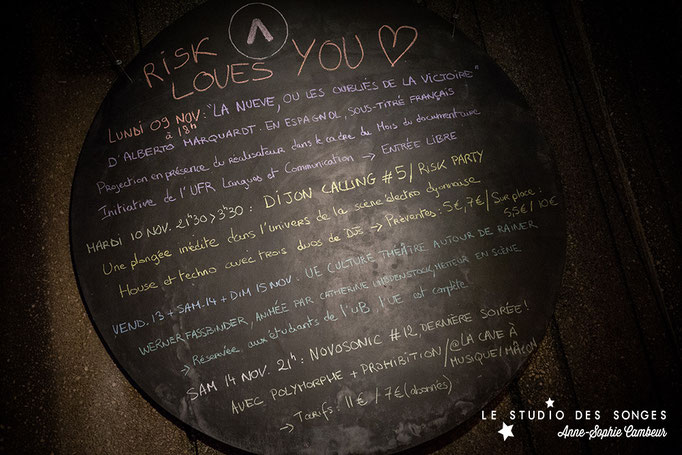 RISK LOVES YOU ♡
LUNDI 09 NOV: "LA NUEVE, OU LES OUBLIÉS DE LA VICTOIRE"
à 18h
D'ALBERTO MARQUARDT. EN ESPAGNOL, SOUS-TITRÉ FRANÇAIS
Projection en présence du réalisateur dans le cadre du Mois du documentaire
Initiative de l'UFR Langues et Communication → ENTRÉE LIBRE
MARDI 10 NOV. 21h30 > 3h30 : DIJON CALLING #5 / RISK PARTY
Une plongée inédite dans l'univers de la scène électro dijonnaise
House et techno avec trois duos de DJs → Préventes: 5€, 7€ / Sur place :
5,5€ / 10€
VEND. 13 + SAM. 14 + DIM 15 NOV : UE CULTURE THÉÂTRE AUTOUR DE RAINER
WERNER FASSBINDER, ANIMÉE PAR CATHERINE METTEUR EN SCÈNE
→ Réservée aux étudiants de l'uB. L'UE est complète.
SAM 14 NOV. 21h : NOVOSONIC #12, DERNIÈRE SOIRÉE !
AVEC POLYMORPHE + PROHIBITION / @LA CAVE À
MUSIQUE / MÂCON
→ Tarifs : 11€ / 7€ (abonnés)
LE STUDIO DES SONGES
Anne-Sophie Cambeur